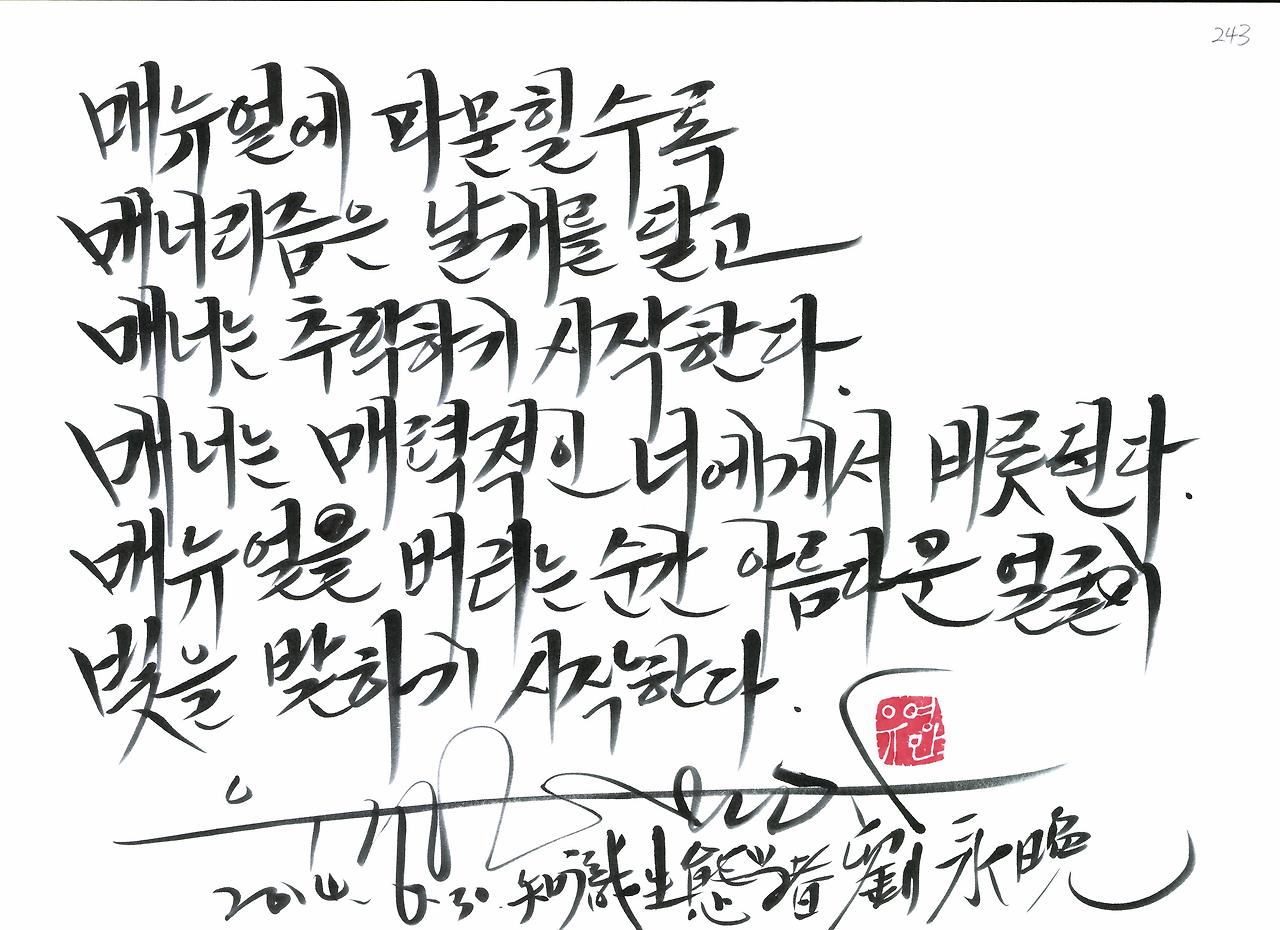 243
매뉴얼에 파묻힐수록
매너리즘은 날개를 달고
매너는 추락하기 시작한다.
매너는 매력적인 너에게서 비롯된다.
매뉴얼을 버리는 순간 아름다운 얼굴이
빛을 발하기 시작한다.
유영만
2014. 6. 30. 知識生態学者 劉永晩